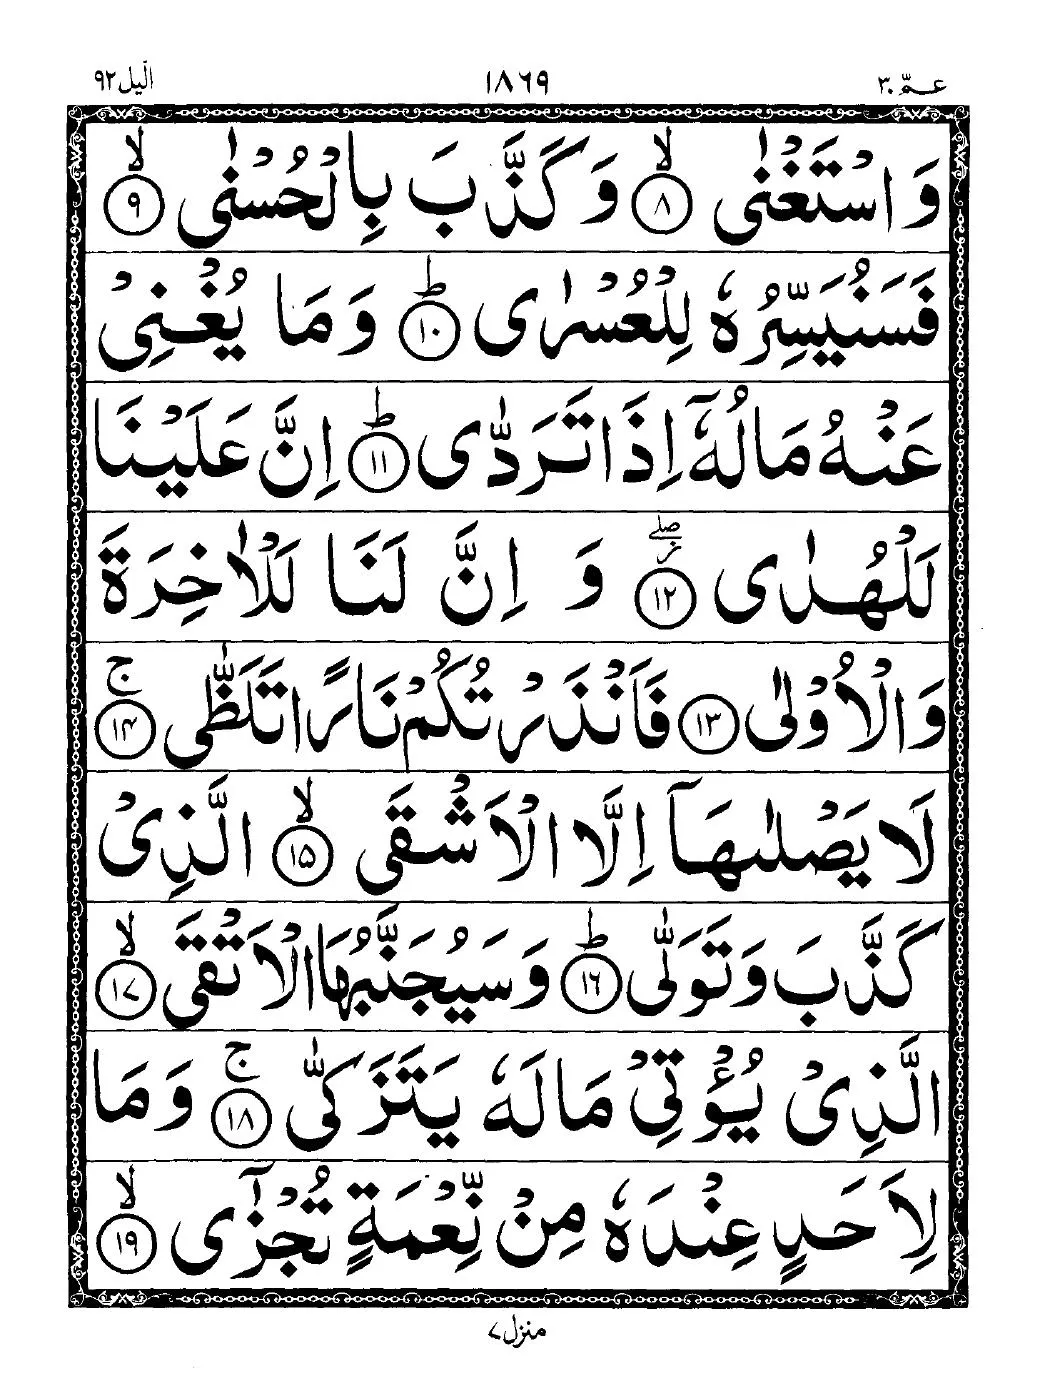 عـمّ ٣٠ ١٨٦٩ الّيل ٩٢
وَاسْتَغْنٰى ۙ ﴿٨﴾ وَكَذَّبَ بِالْحُسْنٰى ۙ ﴿٩﴾
فَسَنُيَسِّرُهٗ لِلْعُسْرٰى ؕ ﴿١٠﴾ وَمَا يُغْنِىْ
عَنْهُ مَالُهٗۤ اِذَا تَرَدّٰى ؕ ﴿١١﴾ اِنَّ عَلَيْنَا
لَلْهُدٰى ۖ ﴿١٢﴾ وَ اِنَّ لَنَا لَلْاٰخِرَةَ
وَالْاُوْلٰى ﴿١٣﴾ فَاَنْذَرْتُكُمْ نَارًا تَلَظّٰى ۚ ﴿١٤﴾
لَا يَصْلٰىهَاۤ اِلَّا الْاَشْقَى ۙ ﴿١٥﴾ الَّذِىْ
كَذَّبَ وَتَوَلّٰى ؕ ﴿١٦﴾ وَسَيُجَنَّبُهَا الْاَتْقَى ۙ ﴿١٧﴾
الَّذِىْ يُؤْتِىْ مَالَهٗ يَتَزَكّٰى ۚ ﴿١٨﴾ وَمَا
لِاَحَدٍ عِنْدَهٗ مِنْ نِّعْمَةٍ تُجْزٰٓى ۙ ﴿١٩﴾
منزل ٧